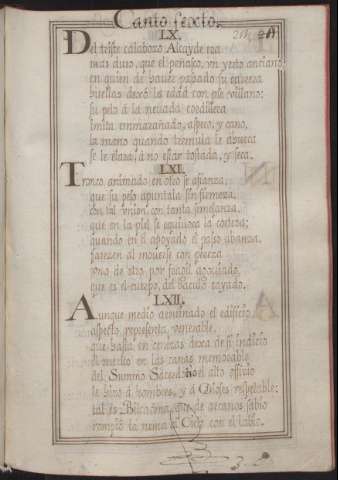 Canto sexto.
LX.
Del triste calabozo Alcayde era
mas duro, que el peñasco, un yerto anciano,
en quien de haver passado su carrera
huellas dexó la edad con pie villano:
su pelo a la nevada cordillera
imita enmarañado, aspero, y cano,
la mano quando tremula le abueca
se le elara, á no estar tostada, y seca.
LXI.
Tronco animado en otro se afianza,
que su peso apuntala sin firmeza,
con tal union, con tanta semejanza,
que en la piel se equivoca la corteza:
quando en el apoyado el passo abanza,
parecen al moverse con pereza
uno de otro por fragil apoyado,
que es el cuerpo, del baculo cayado.
LXII.
Aunque medio arruinado el edificio,
aspecto representa venerable,
que hasta en cenizas dexa de si indicio
el respeto en las canas memorable
del Summo Sacerdocio el alto officio
le hizo á hombres, y á Dioses respetable:
tal es Bilcaoma, que de arcanos sabio
rompió la nema al Cielo con el labio.